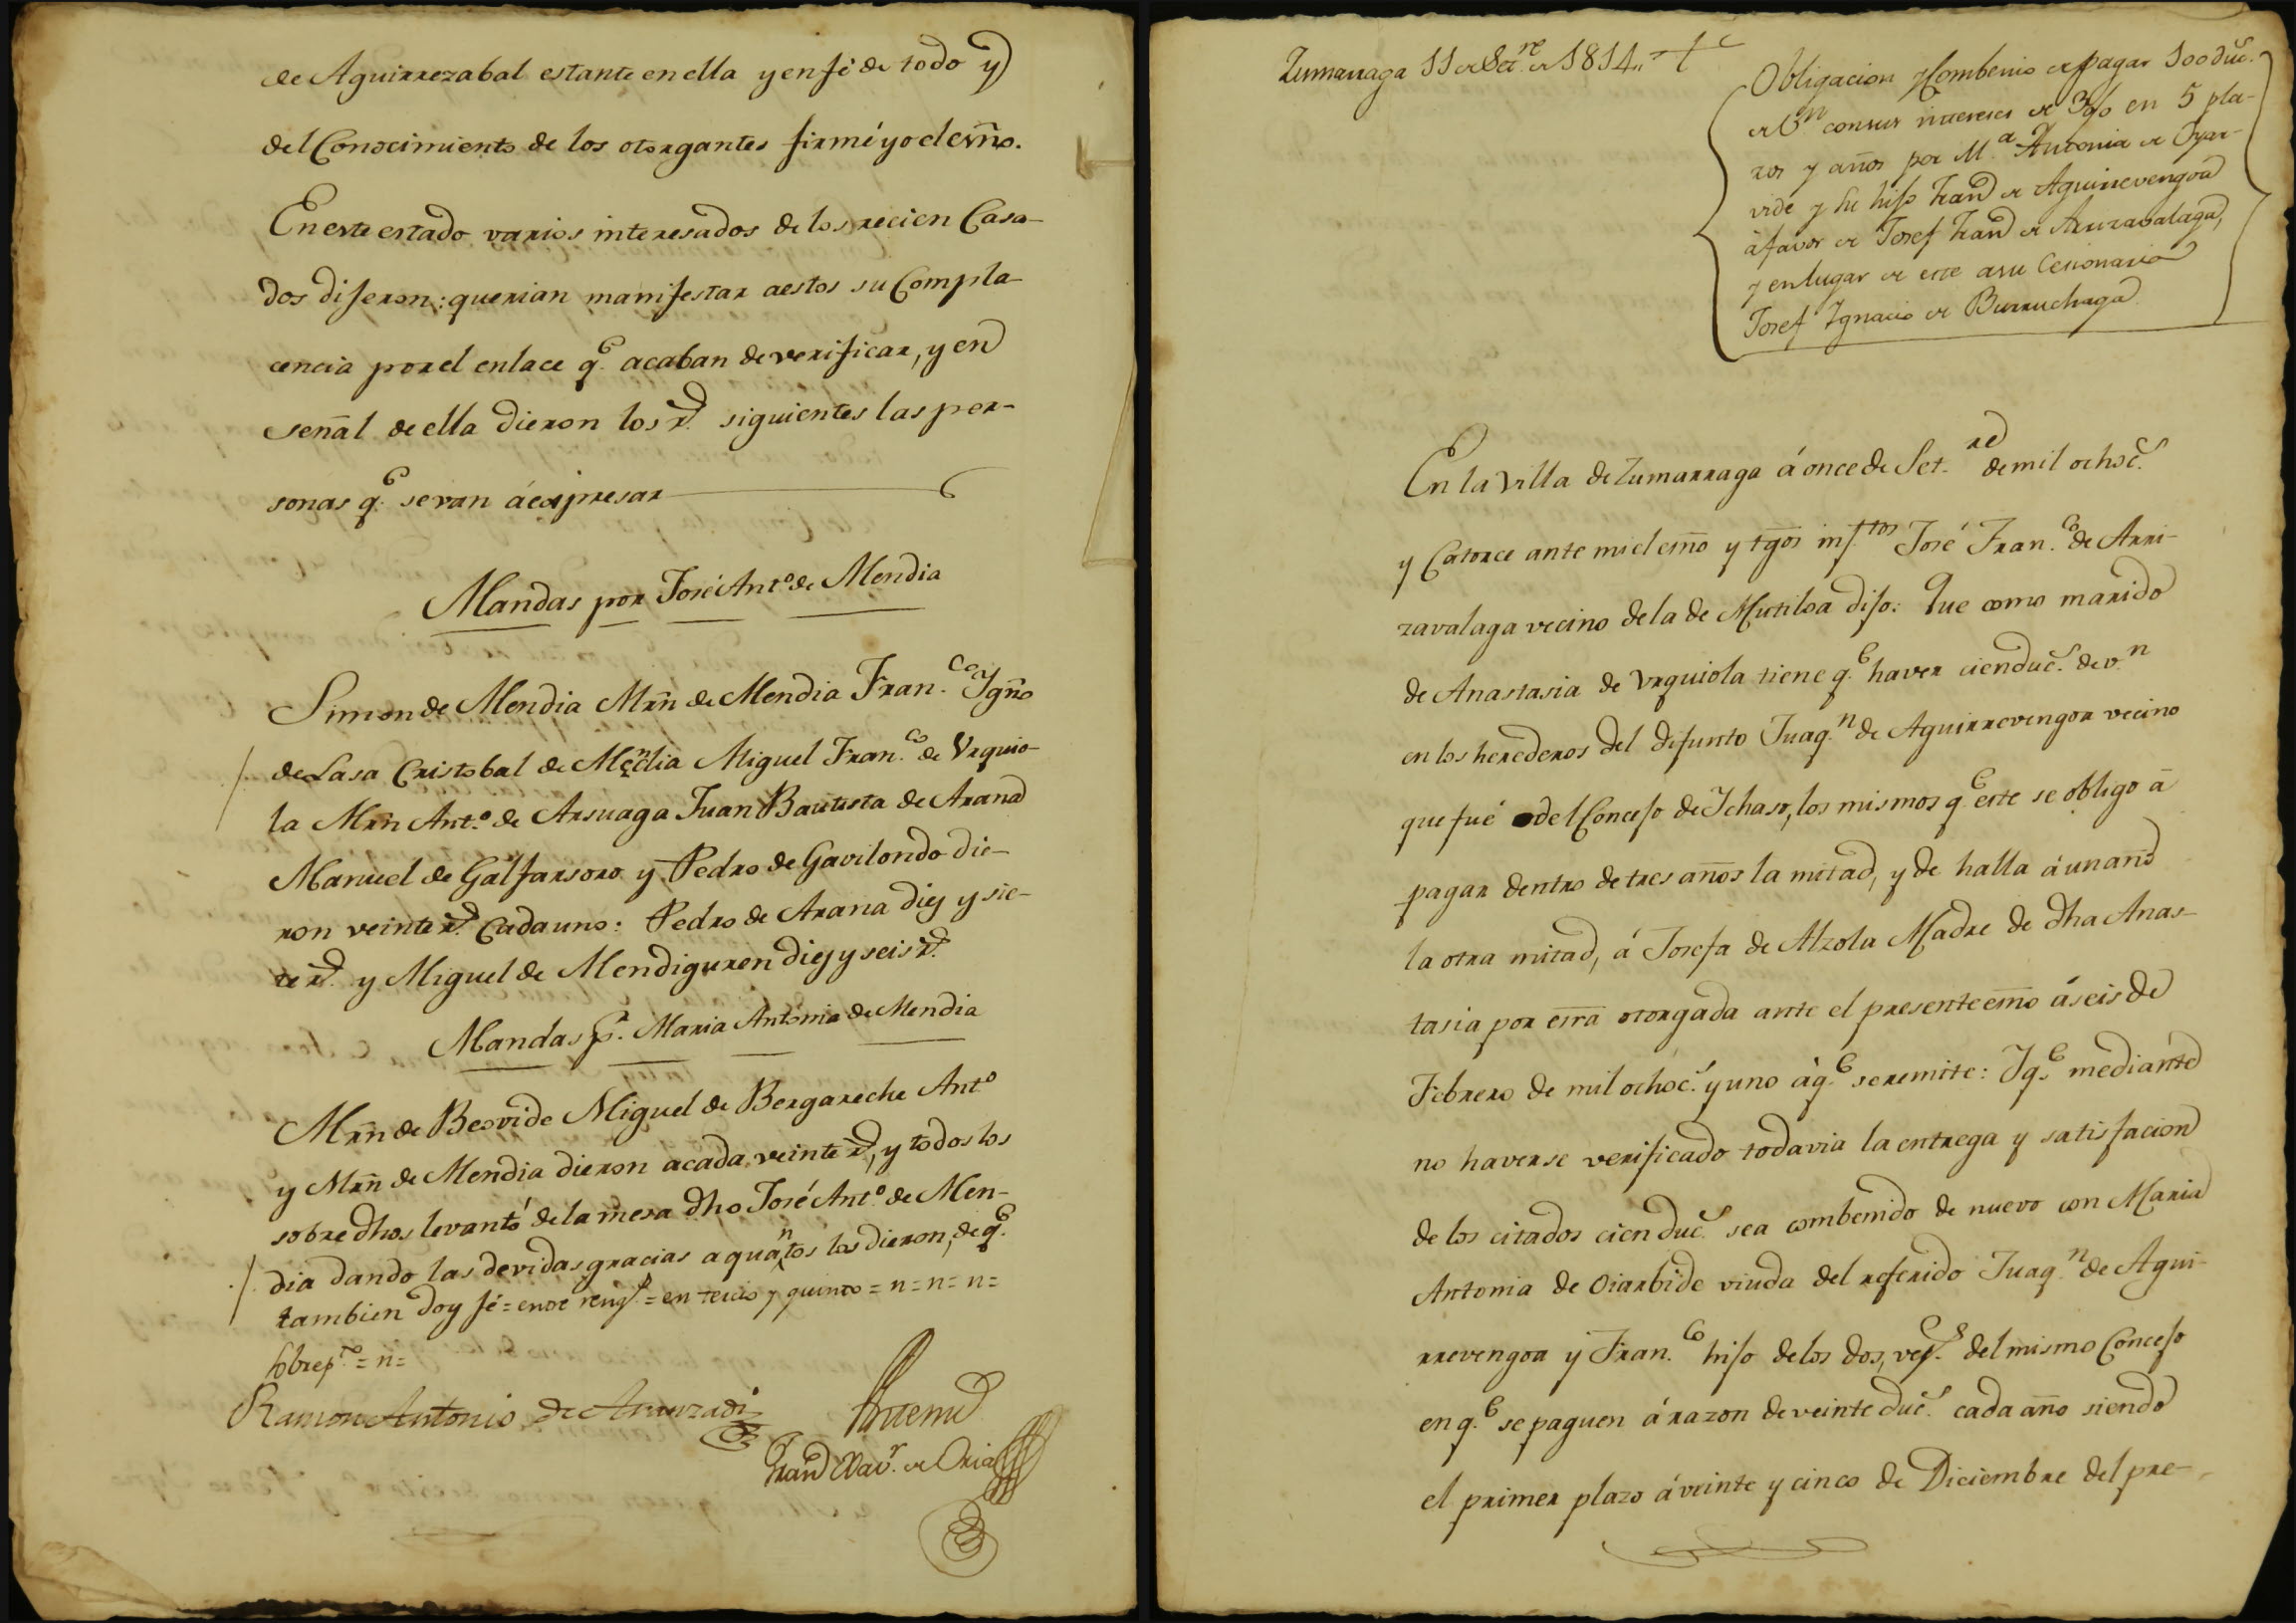 de Aguirrezabal estante en ella y en fé de todo y
del Conocimiento de los otorgantes firmé yo el esno.
En este estado varios interesados de los recien Casa-
dos dijeron: querian manifestar aestos su Compla-
cencia por el enlace q.e acaban de verificar, y en
señal de ella dieron los r.s siguientes las per-
sonas q.e se van á expresar
Mandas por José Ant.o de Mendia
Simon de Mendia Mrn de Mendia Fran.co Ygno
de Lasa Cristobal de Mendia Miguel Fran.co de Vrquio-
la Mrn Ant.o de Arsuaga Juan Bautista de Arana
Manuel de Galfarsoro y Pedro de Gavilondo die-
ron veinte r.s Cada uno: Pedro de Arana diez y sie-
te r.s y Miguel de Mendiguren diez y seis r.s
Mandas p.r Maria Antonia de Mendia
Mrn de Beovide Miguel de Bergareche Ant.o
y Mrn de Mendia dieron acada veinte r.s, y todos los
sobre dhos levantó de la mesa dho José Ant.o de Men-
dia dando las devidas gracias a quantos los dieron, de q.e
tambien doy fé = entre reng.s = en tercio y quinto = n = n = n =
sobrep.to = n =
Ramon Antonio de Aranzadi
Fran.co Xav.r de Oria
Zumarraga 11 de Set.re de 1814,,
Obligacion y Combenio de pagar 100 duc.s
de v.n con sus intereses de 3 p% en 5 pla-
zos y años por M.a Antonia de Oyar-
vide y su hijo Fran.co de Aguirrevengoa
á favor de Josef Fran.co de Arrizavalaga,
y en lugar de este a su Cesionario
Josef Ygnacio de Burruchaga
En la Villa de Zumarraga á once de Set.re de mil ochoc.s
y Catorce ante mi el esno y tgos inf.tos José Fran.co de Arri-
zavalaga vecino de la de Mutiloa dijo: Que como marido
de Anastasia de Vrquiola tiene q.e haver cien duc.s de v.n
en los herederos del difunto Juaq.n de Aguirrevengoa vecino
que fué del Concejo de Ichaso, los mismos q.e este se obligo á
pagar dentro de tres años la mitad, y de halla á un año
la otra mitad, á Josefa de Alzola Madre de dha Anas-
tasia por esrâ otorgada ante el presente esno á seis de
Febrero de mil ochoc.s y uno á q.e se remite: Y q.e mediante
no haverse verificado todavia la entrega y satisfacion
de los citados cien duc.s sea combenido de nuevo con Maria
Antonia de Oiarbide viuda del referido Juaq.n de Agui-
rrevengoa y Fran.co hijo de los dos, vec.s del mismo Concejo
en q.e se paguen á razon de veinte duc.s cada año siendo
el primer plazo á veinte y cinco de Diciembre del pre-